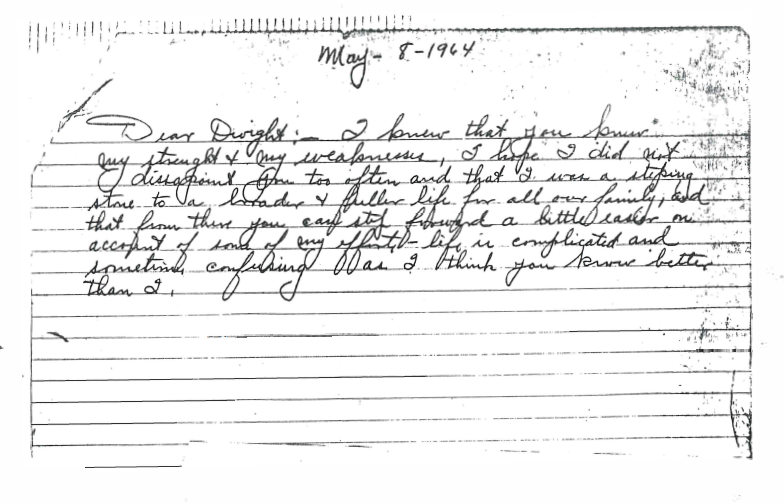 May - 8 - 1964
Dear Dwight: - I knew that you knew
my strenght & my weaknesses, I hope I did not
dissapoint you too often and that I was a steping
stone to a broader & fuller life for all our family, and
that from there you can step forward a little easier on
account of some of my efforts - life is complicated and
sometimes confusing as I think you know better
than I.